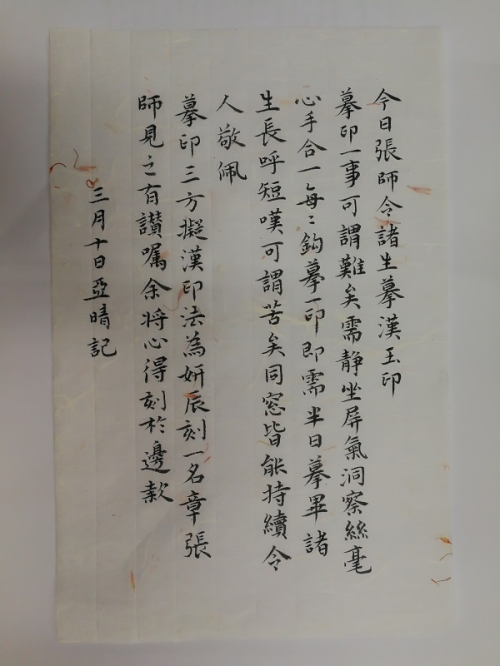 今日張師令諸生摹漢玉印
摹印一事可謂難矣需静坐屏氣洞察絲毫
心手合一每〻鈎摹一印即需半日摹畢諸
生長呼短嘆可謂苦矣同窓皆能持續令
人敬佩
摹印三方擬漢印法為妍辰刻一名章張
師見之有讃嘱余将心得刻於邊款
三月十日亞晴記